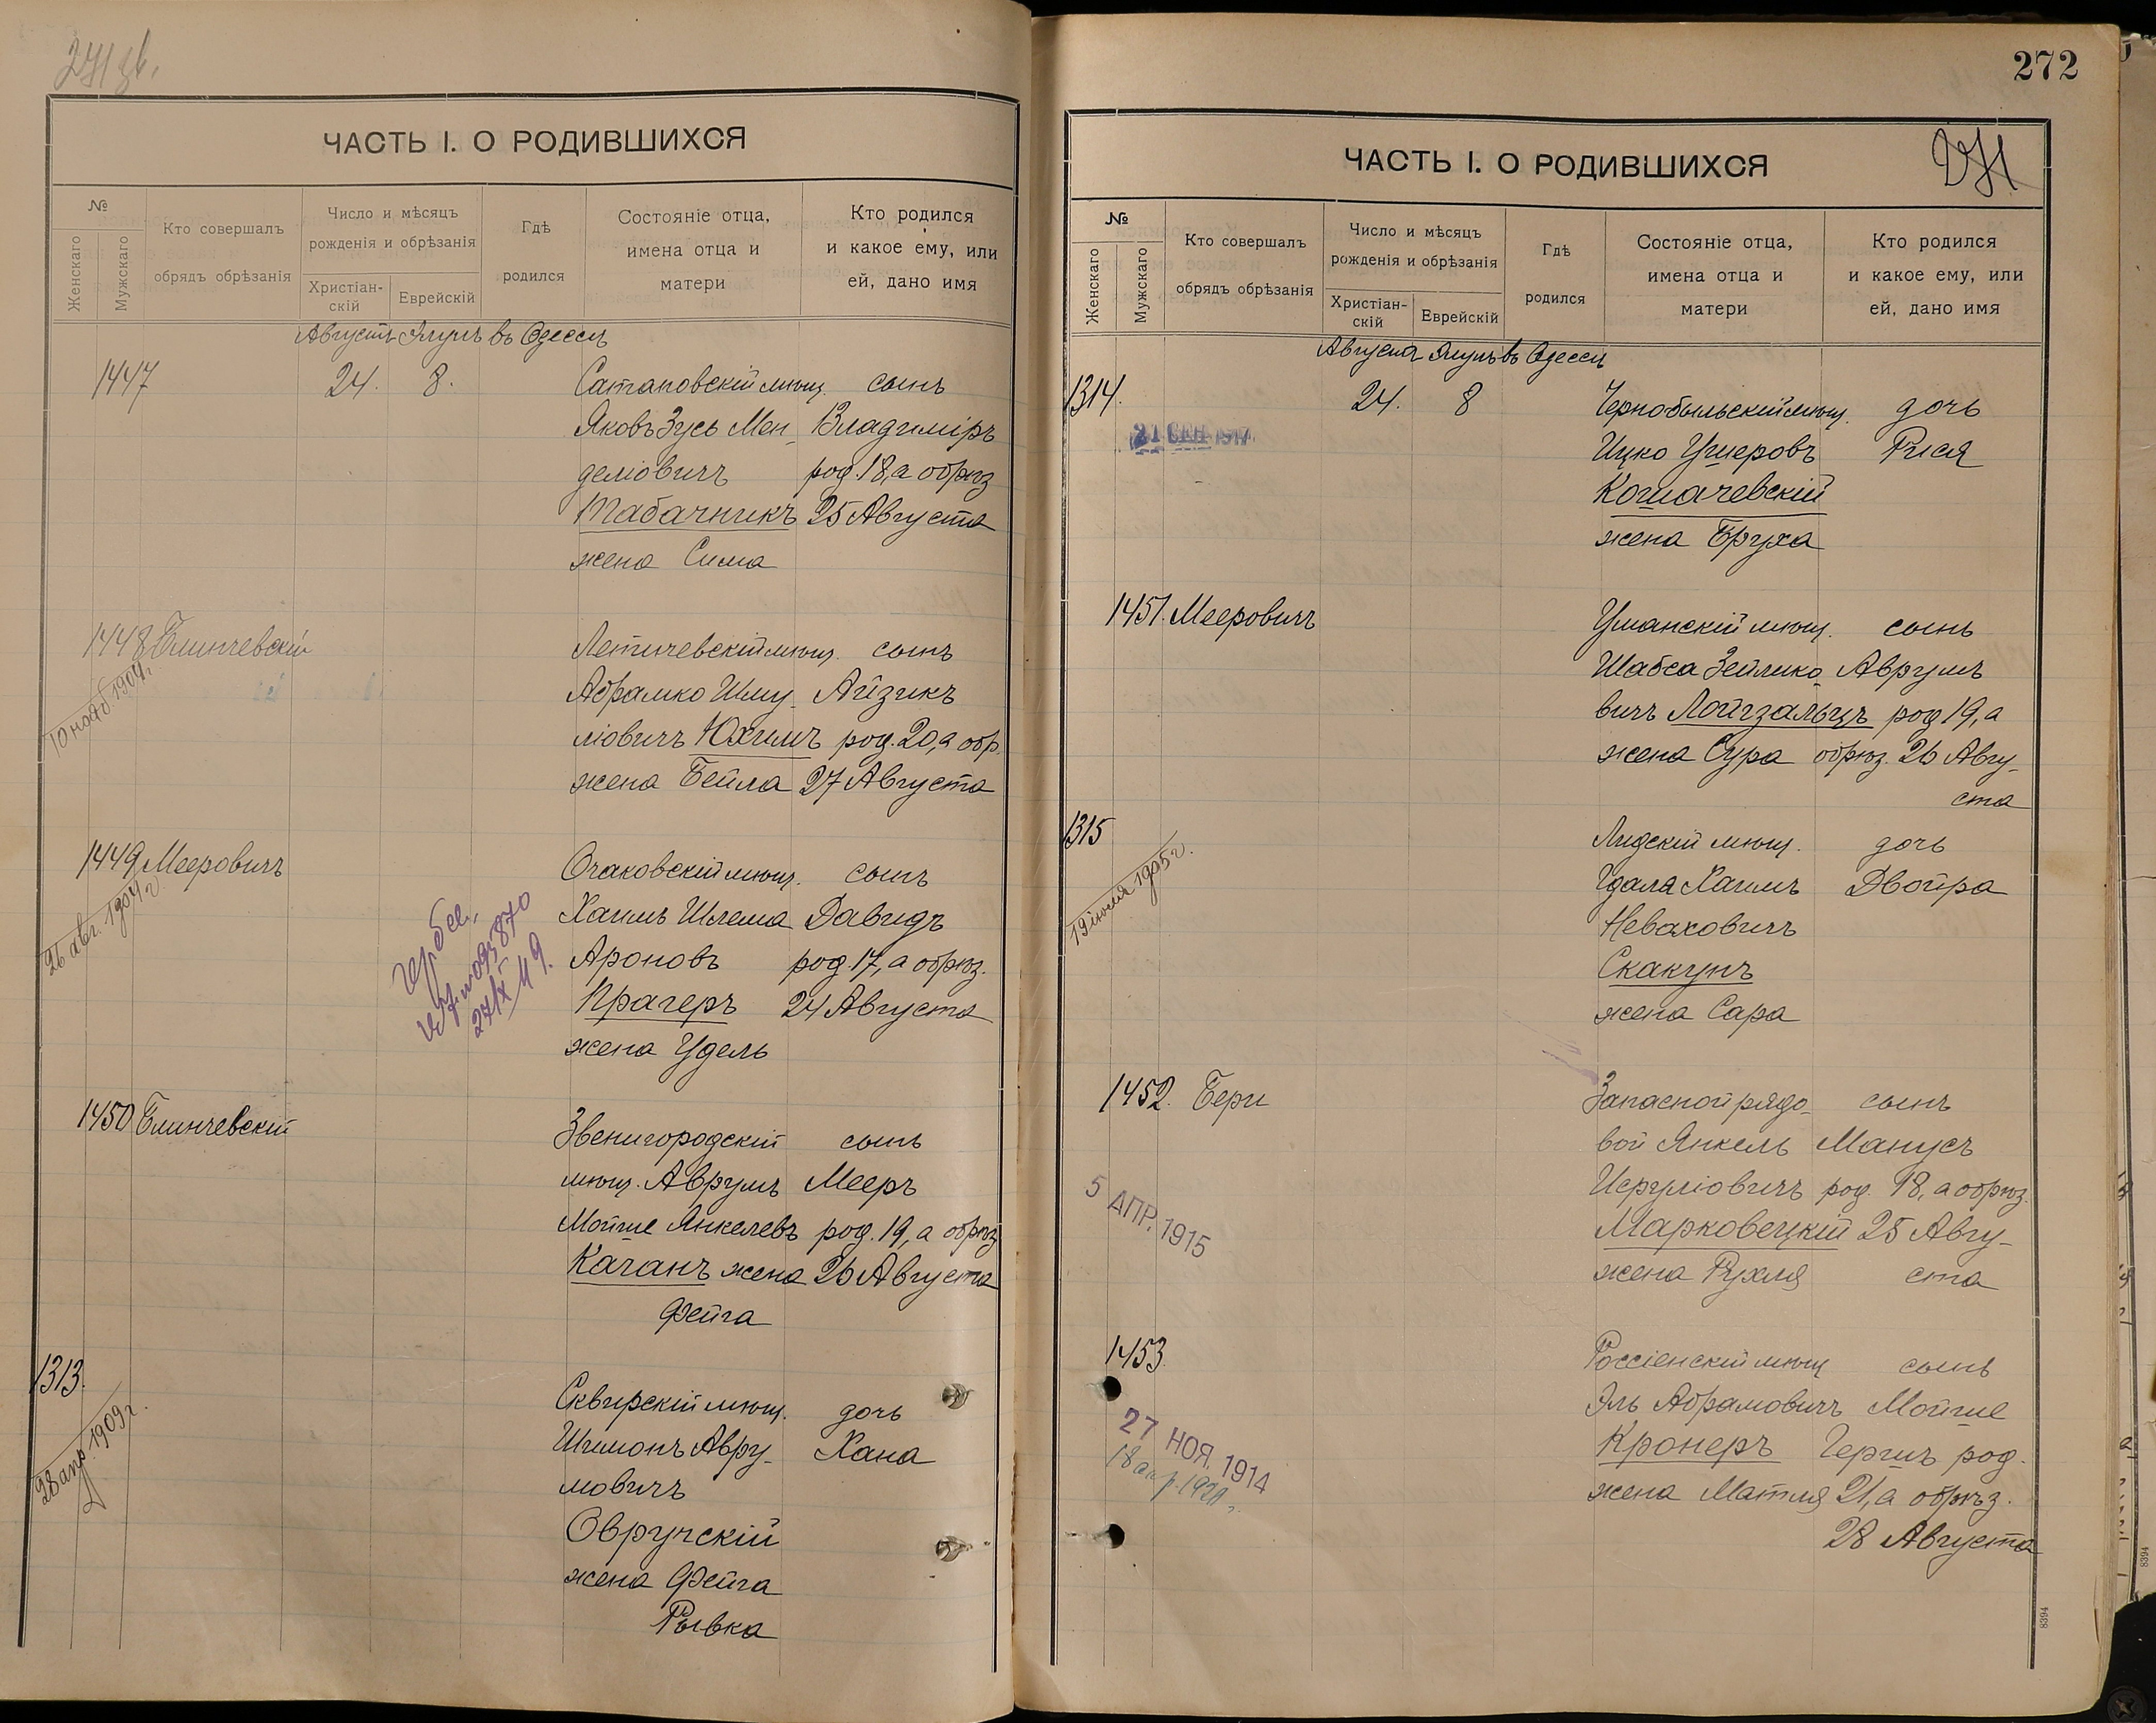 ЧАСТЬ I. О РОДИВШИХСЯ
№
Женскаго
Мужскаго
Кто совершалъ
обрядъ обрѣзанія
Число и мѣсяцъ
рожденія и обрѣзанія
Христіан-
скій
Еврейскій
Гдѣ
родился
Состояніе отца,
имена отца и
матери
Кто родился
и какое ему, или
ей, дано имя
Августъ Элулъ въ Одессѣ
1447 24. 8. Сатановскій мѣщ. сынъ
Яковъ Зусь Мен- Владиміръ
деліовичъ род. 18, а обрѣз
Табачникъ 25 Августа
жена Сима
1448 Блинчевскій Летичевскій мѣщ. сынъ
10 нояб. 1904 г.
Абрамко Шму- Айзикъ
ліовичъ Юхимъ род. 20, а обр.
жена Бейла 27 Августа
1449 Мееровичъ Очаковскій мѣщ. сынъ
26 авг. 1904 г
Хаимъ Шлема Давидъ
Ароновъ род. 17, а обрѣз.
Прагеръ 24 Августа
жена Удель
1450 Блинчевскій Звенигородскій сынъ
мѣщ. Аврумъ Мееръ
Мойше Янкелевъ род. 19, а обрѣз
Качанъ жена 26 Августа
Фейга
1313. Сквирскій мѣщ. дочь
28 апр. 1909 г.
Шимонъ Авру- Хана
мовичъ
Овручскій
жена Фейга
Рывка
272
ЧАСТЬ I. О РОДИВШИХСЯ
271
№
Женскаго
Мужскаго
Кто совершалъ
обрядъ обрѣзанія
Число и мѣсяцъ
рожденія и обрѣзанія
Христіан-
скій
Еврейскій
Гдѣ
родился
Состояніе отца,
имена отца и
матери
Кто родился
и какое ему, или
ей, дано имя
Августа Элулъ въ Одессѣ
1314. 24. 8 Чернобыльскій мѣщ. дочь
Ицко Ушеровъ Рися
Кошачевскій
жена Бруха
1451. Мееровичъ Уманскій мѣщ. сынъ
Шабса Зейлико- Аврумъ
вичъ Лойгзальцъ род 19, а
жена Сура обрѣз. 26 Авгу-
ста
1315 Лидскій мѣщ. дочь
Гдаля Хаимъ Двойра
Неваховичъ
Скакунъ
жена Сара
1452. Бери Запасной рядо- сынъ
вой Янкель Манусъ
Исруліовичъ род. 18, а обрѣз.
5 АПР. 1915
Марковецкій 25 Авгу-
жена Рухля ста
1453. Россіенскій мѣщ сынъ
Эль Абрамовичъ Мойше
27 НОЯ. 1914
Кронеръ Гершъ род.
жена Матля 21, а обрѣз.
28 Августа
8394